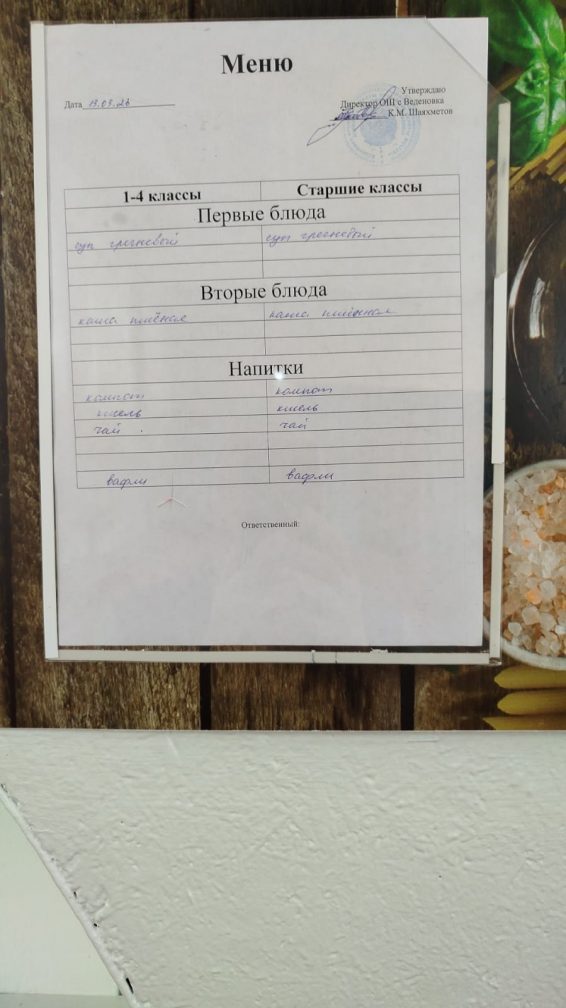 Меню
Утверждаю
Дата 13.03.26 Директор ОЩ с Веденовка
К.М. Шаяхметов
1-4 классы Старшие классы
Первые блюда
суп гречневый суп гречневый
Вторые блюда
каша пшённая каша пшённая
Напитки
компот компот
кисель кисель
чай чай
вафли вафли
Ответственный: